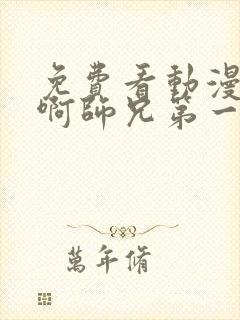 免費看動漫
啊師兄第一
萬年脩